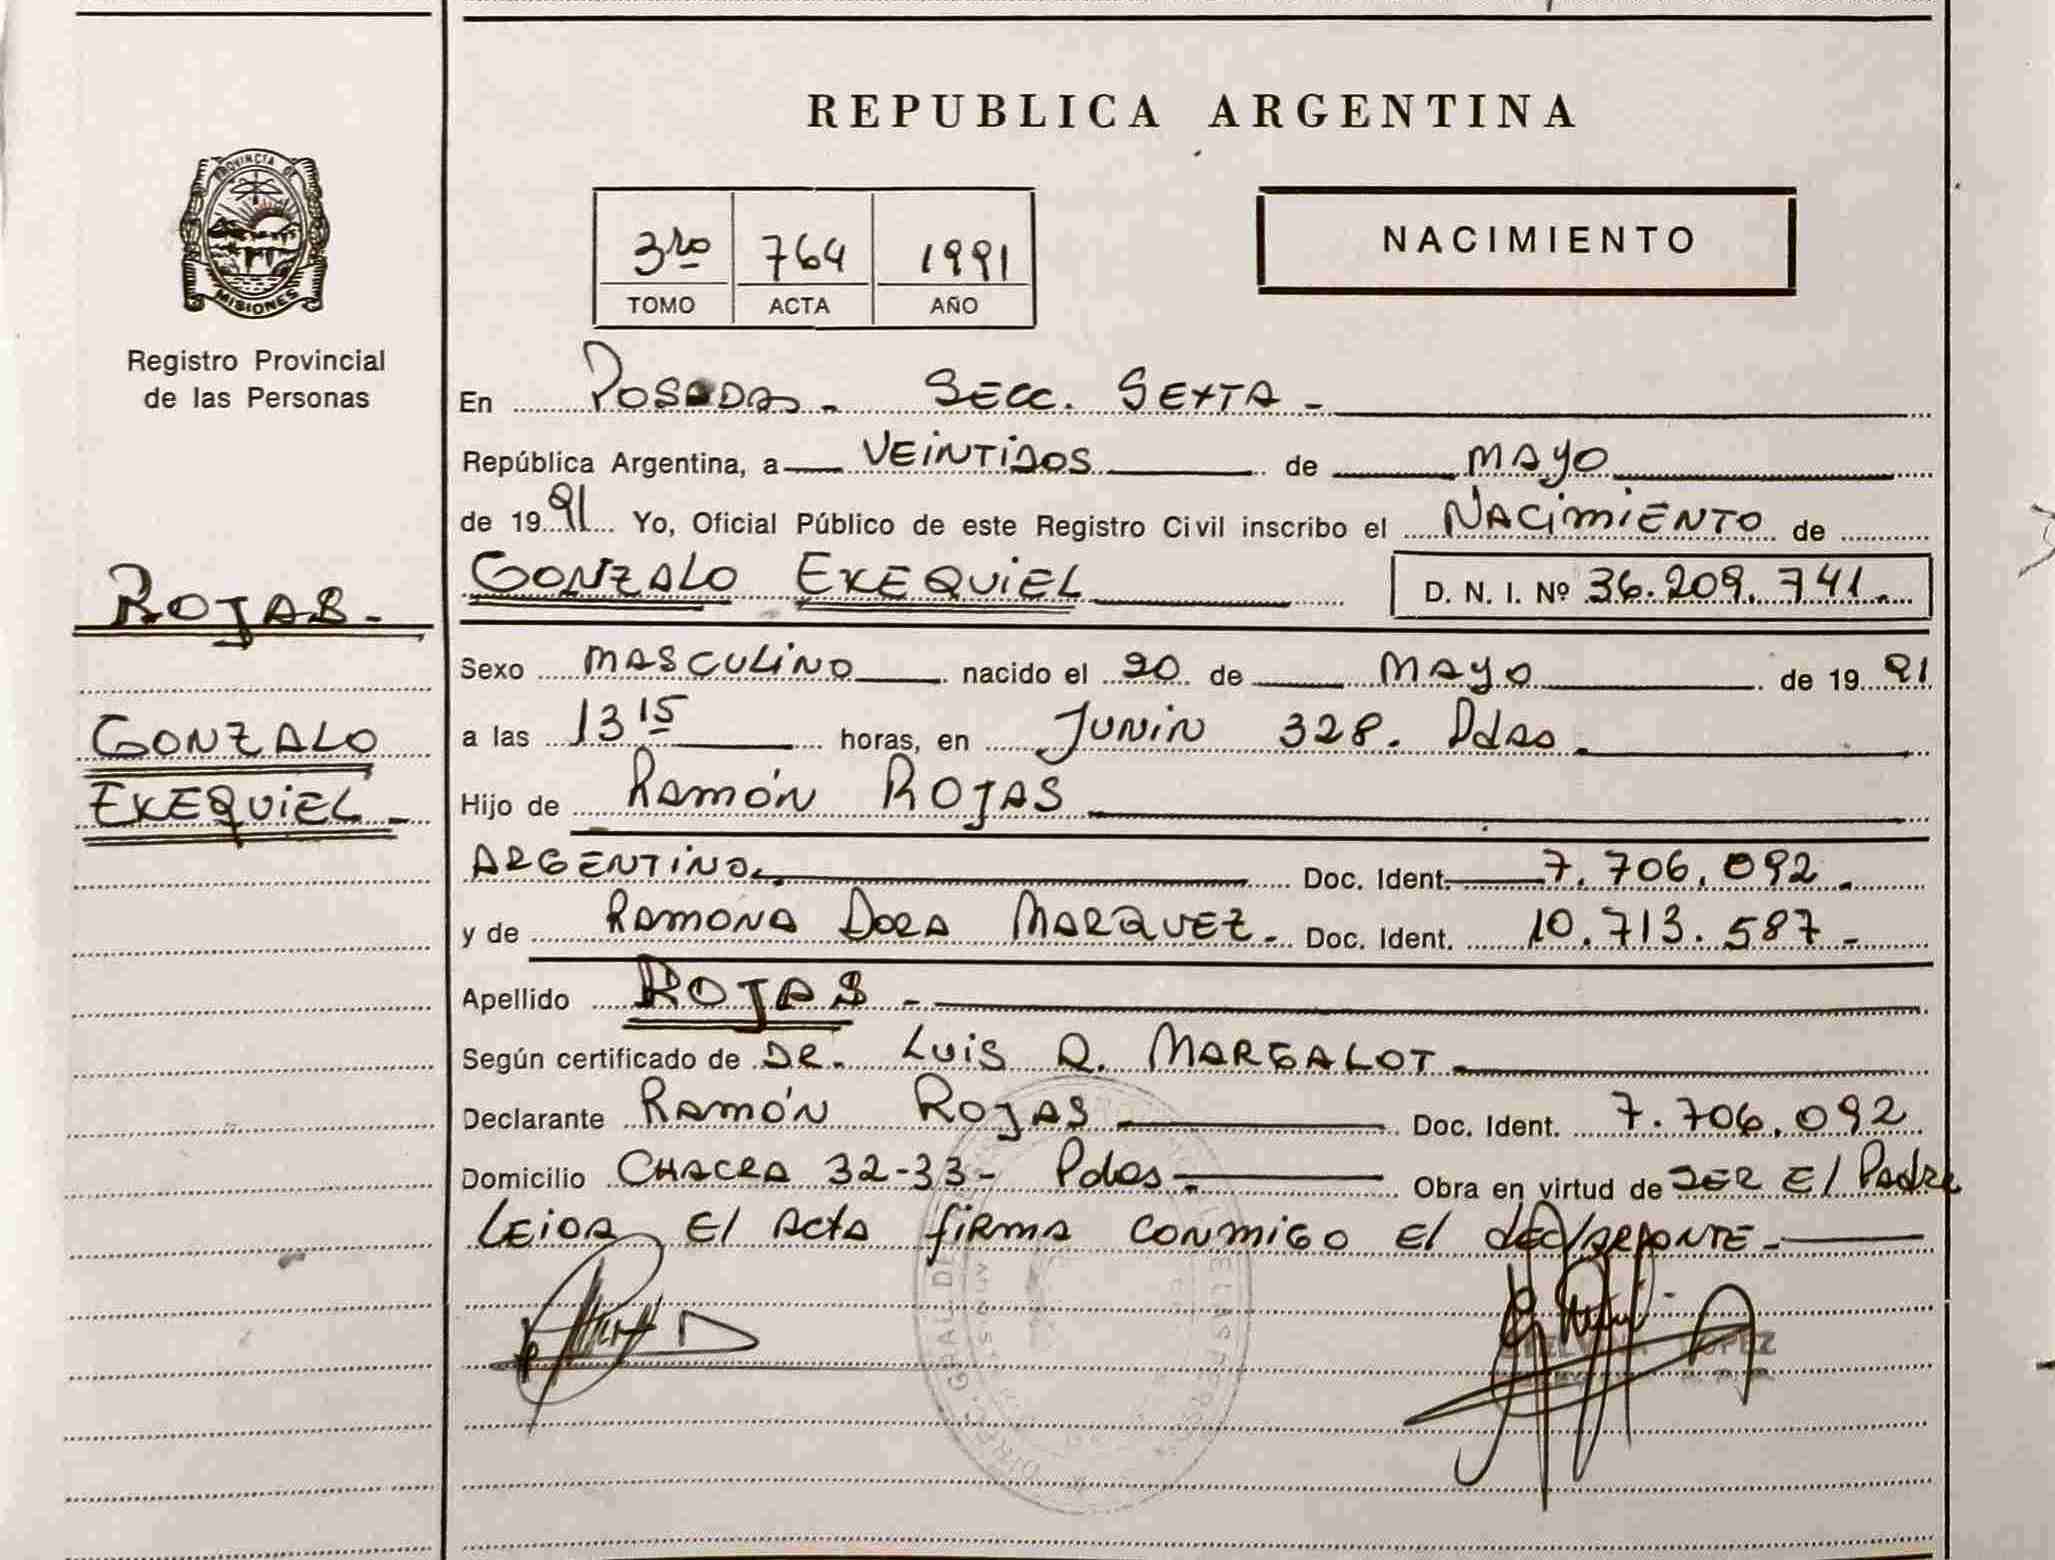 REPUBLICA ARGENTINA
PROVINCIA DE
MISIONES
Registro Provincial
de las Personas
NACIMIENTO
3ro 764 1991
TOMO ACTA AÑO
En POSADAS - SECC. SEXTA -
República Argentina, a VEINTIDOS de MAYO
de 1991 Yo, Oficial Público de este Registro Civil inscribo el NACIMIENTO de
GONZALO EXEQUIEL D. N. I. Nº 36.209.741.-
ROJAS -
GONZALO
EXEQUIEL -
Sexo MASCULINO nacido el 20 de MAYO de 1991
a las 13 15 horas, en JUNIN 328. Pdas.
Hijo de RAMÓN ROJAS
ARGENTINO. Doc. Ident. 7.706.092.
y de RAMONA DORA MARQUEZ - Doc. Ident. 10.713.587 -
Apellido ROJAS -
Según certificado de DR. LUIS MARGALOT
Declarante RAMÓN ROJAS Doc. Ident. 7.706.092
Domicilio CHACRA 32-33- Pdas. Obra en virtud de SER El Padre
LEIDA El Acta firma conmigo El declarante -
LOPEZ